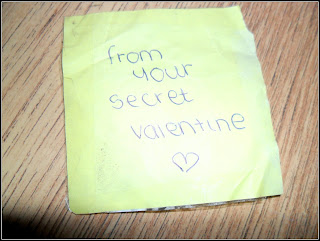 from
your
secret
valentine
♡